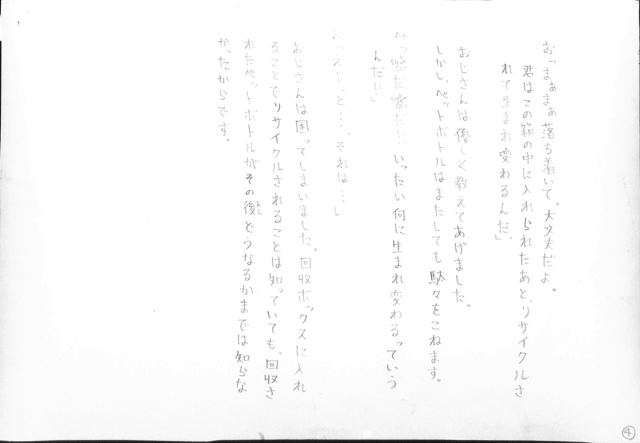 お「まぁまぁ落ち着いて。大丈夫だよ。
君はこの箱の中に入れられたあと、リサイクルさ
れて生まれ変わるんだ」
おじさんは優しく教えてあげました。
しかし、ペットボトルはまたしても駄々をこねます。
ペ「嘘だ嘘だ!!いったい何に生まれ変わるっていう
んだ!!」
お「えーっと…、それは…」
おじさんは困ってしまいました。回収ボックスに入れ
ることでリサイクルされることは知っていても、回収さ
れたペットボトルがその後どうなるかまでは知らな
かったからです。
④